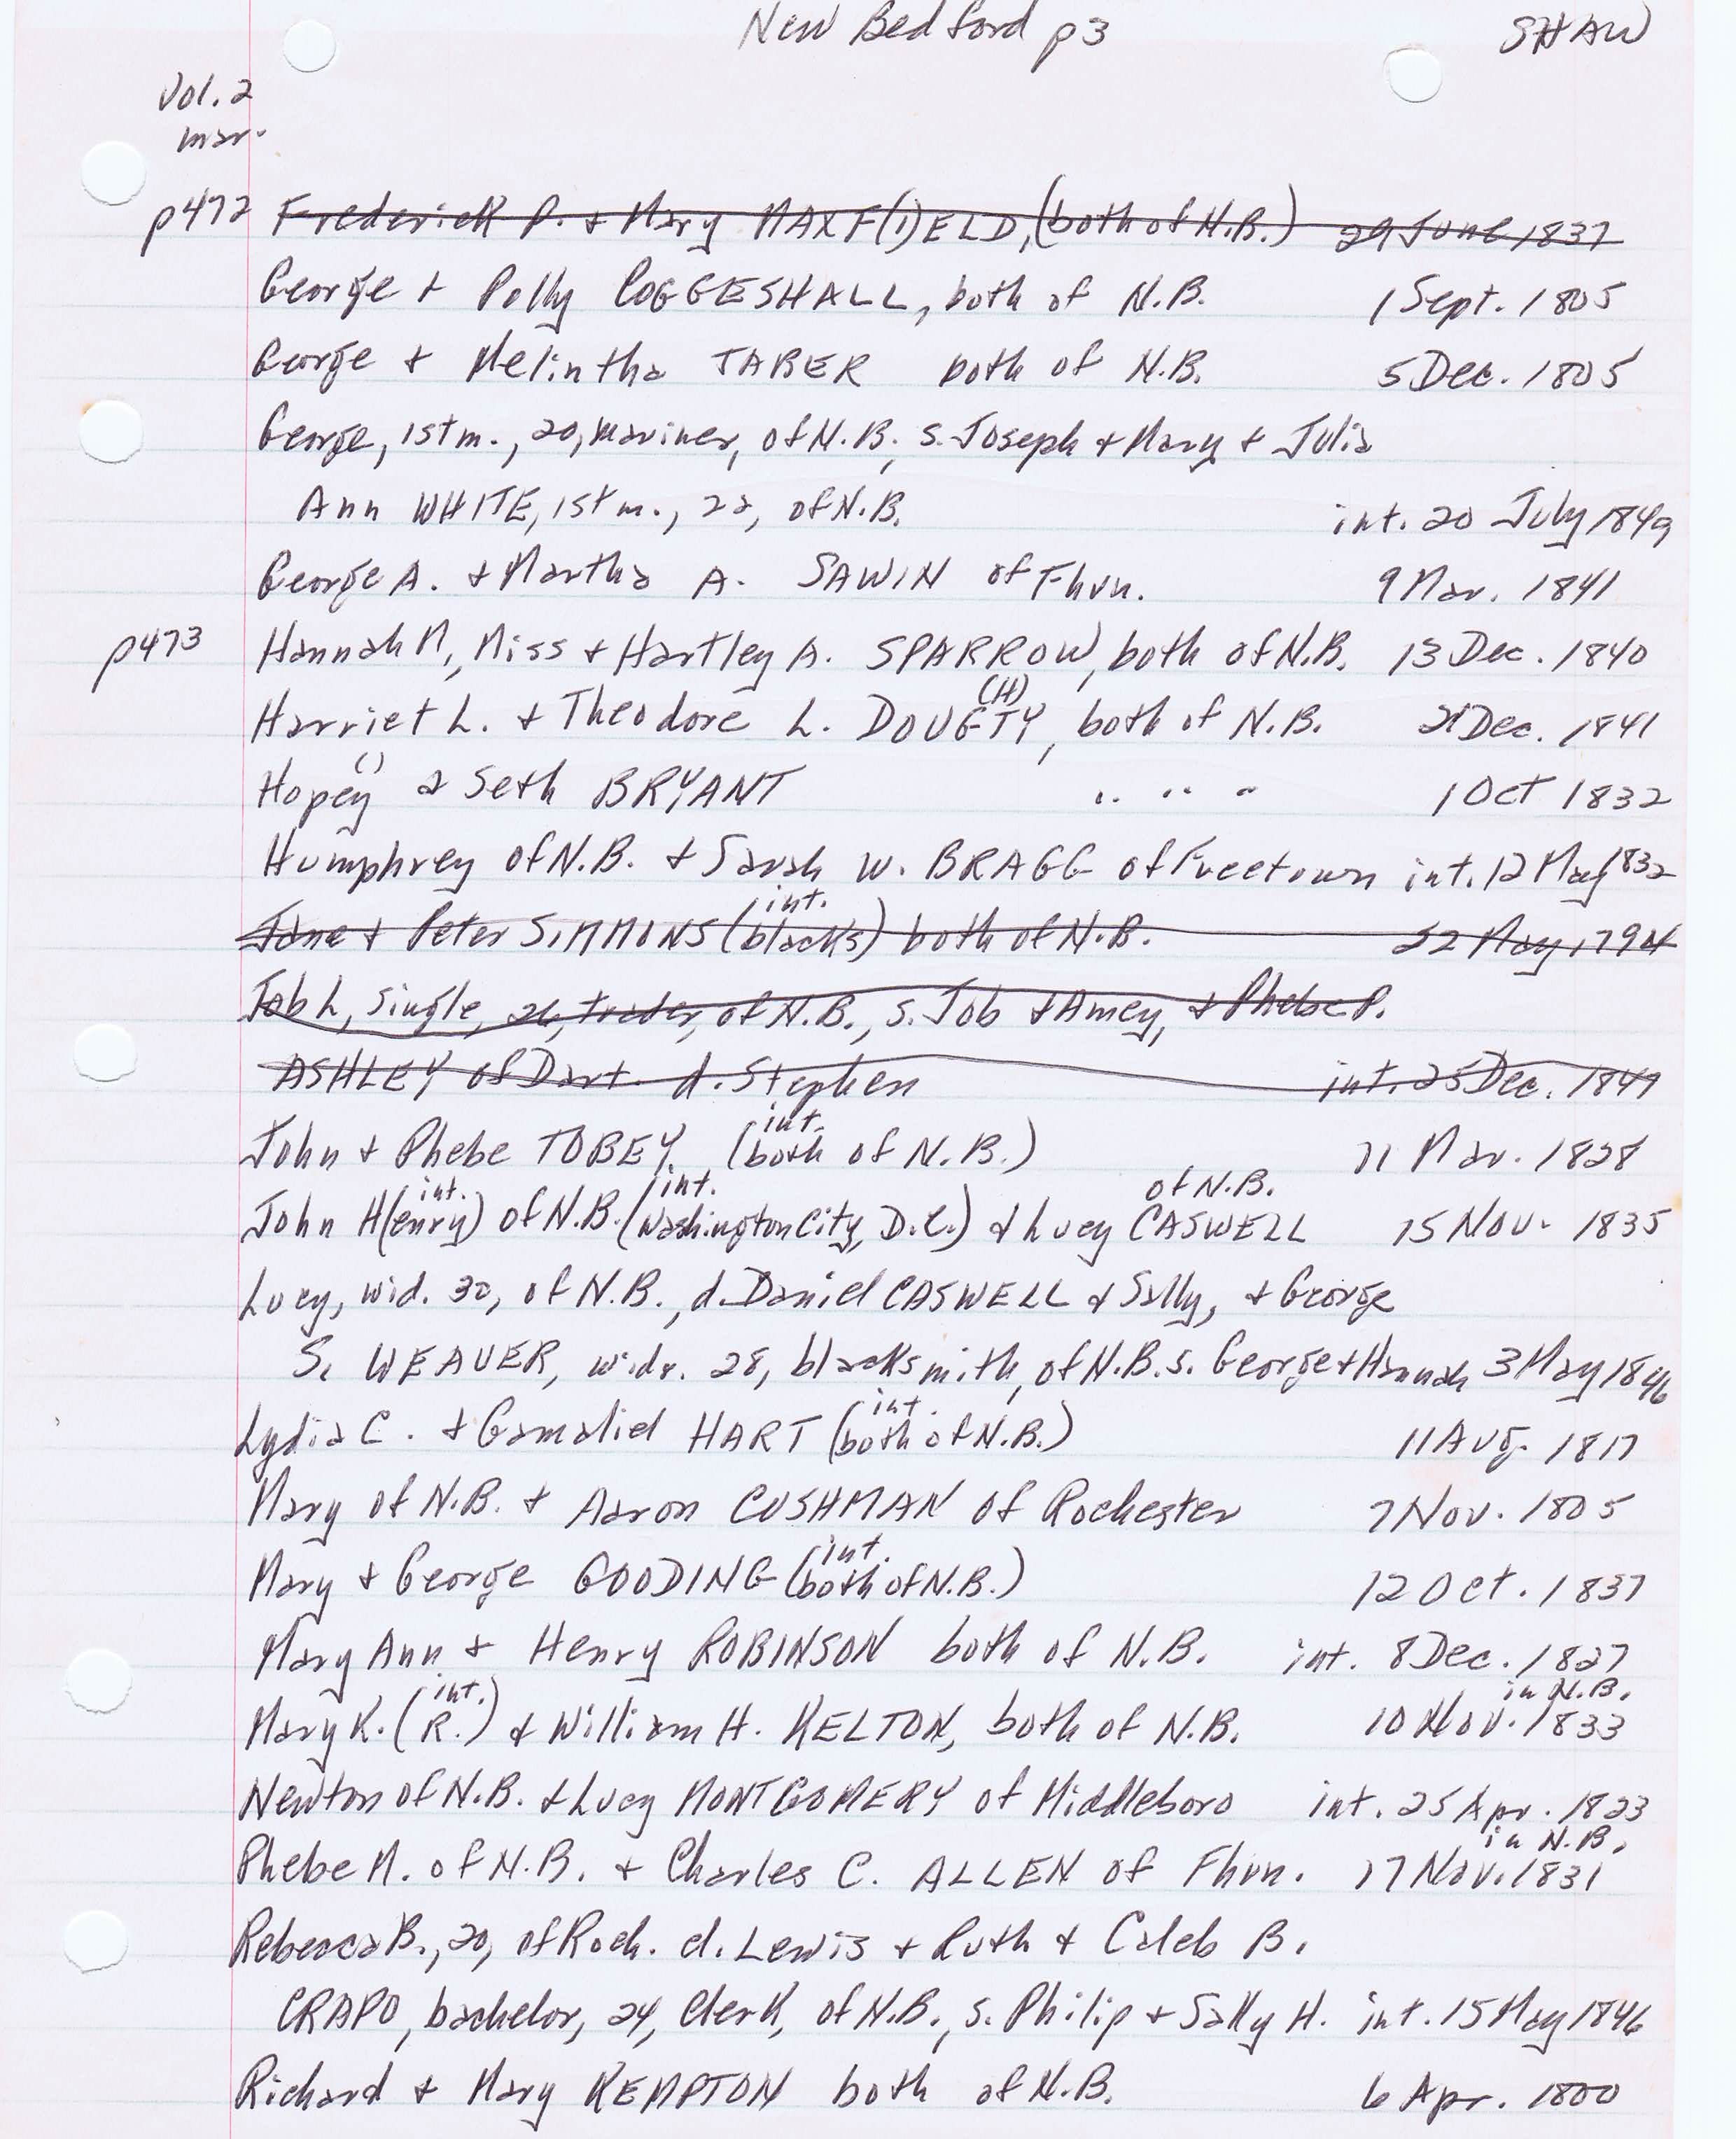 New Bedford p3 SHAW
Vol. 2
mar.
p472 Frederick P. & Mary MAXF(I)ELD, (both of N.B.) 29 June 1837
George & Polly COGGESHALL, both of N.B. 1 Sept. 1805
George & Melintha TABER both of N.B. 5 Dec. 1805
George, 1st m., 20, mariner, of N.B., s. Joseph & Mary & Julia
Ann WHITE, 1st m., 22, of N.B. int. 20 July 1849
George A. & Martha A. SAWIN of Fhvn. 9 Mar. 1841
p473 Hannah M., Miss & Hartley A. SPARROW, both of N.B. 13 Dec. 1840
(H)
Harriet L. & Theodore L. DOUGTY, both of N.B. 21 Dec. 1841
( )
Hopey & Seth BRYANT " " " 1 Oct 1832
Humphrey of N.B. & Sarah W. BRAGG of Freetown int. 12 May 1832
int.
Jane & Peter SIMMONS (blacks) both of N.B. 22 May 1794
Job L, single, 26, trader, of N.B., s. Job & Amey, & Phebe P.
ASHLEY of Dart. d. Stephen int. 25 Dec. 1849
int.
John & Phebe TOBEY, (both of N.B.) 11 Mar. 1828
int. int. of N.B.
John H(enry) of N.B. (Washington City, D.C.) & Lucy CASWELL 15 Nov. 1835
Lucy, wid. 30, of N.B., d. Daniel CASWELL & Sally, & George
S. WEAVER, widr. 28, blacksmith, of N.B. s. George & Hannah 3 May 1846
int.
Lydia C. & Gamaliel HART (both of N.B.) 11 Aug. 1817
Mary of N.B. & Aaron CUSHMAN of Rochester 7 Nov. 1805
int.
Mary & George GOODING (both of N.B.) 12 Oct. 1837
Mary Ann & Henry ROBINSON both of N.B. int. 8 Dec. 1827
int. in N.B.
Mary K. (R.) & William H. KELTON, both of N.B. 10 Nov. 1833
Newton of N.B. & Lucy MONTGOMERY of Middleboro int. 25 Apr. 1823
in N.B.
Phebe M. of N.B. & Charles C. ALLEN of Fhvn. 17 Nov. 1831
Rebecca B., 20, of Roch. d. Lewis & Ruth & Caleb B.
CRAPO, bachelor, 24, clerk, of N.B., s. Philip & Sally H. int. 15 May 1846
Richard & Mary KEMPTON both of N.B. 6 Apr. 1800